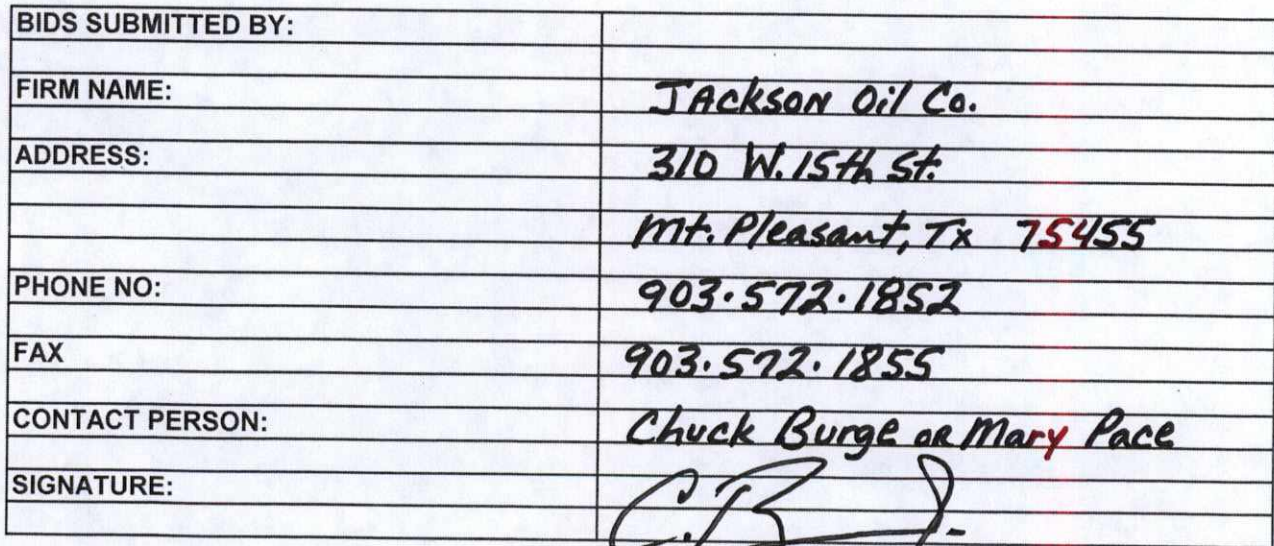 BIDS SUBMITTED BY:
FIRM NAME: JAckson Oil Co.
ADDRESS: 310 W. 15th St.
Mt. Pleasant, Tx 75455
PHONE NO: 903·572·1852
FAX 903·572·1855
CONTACT PERSON: Chuck Burge or Mary Pace
SIGNATURE: